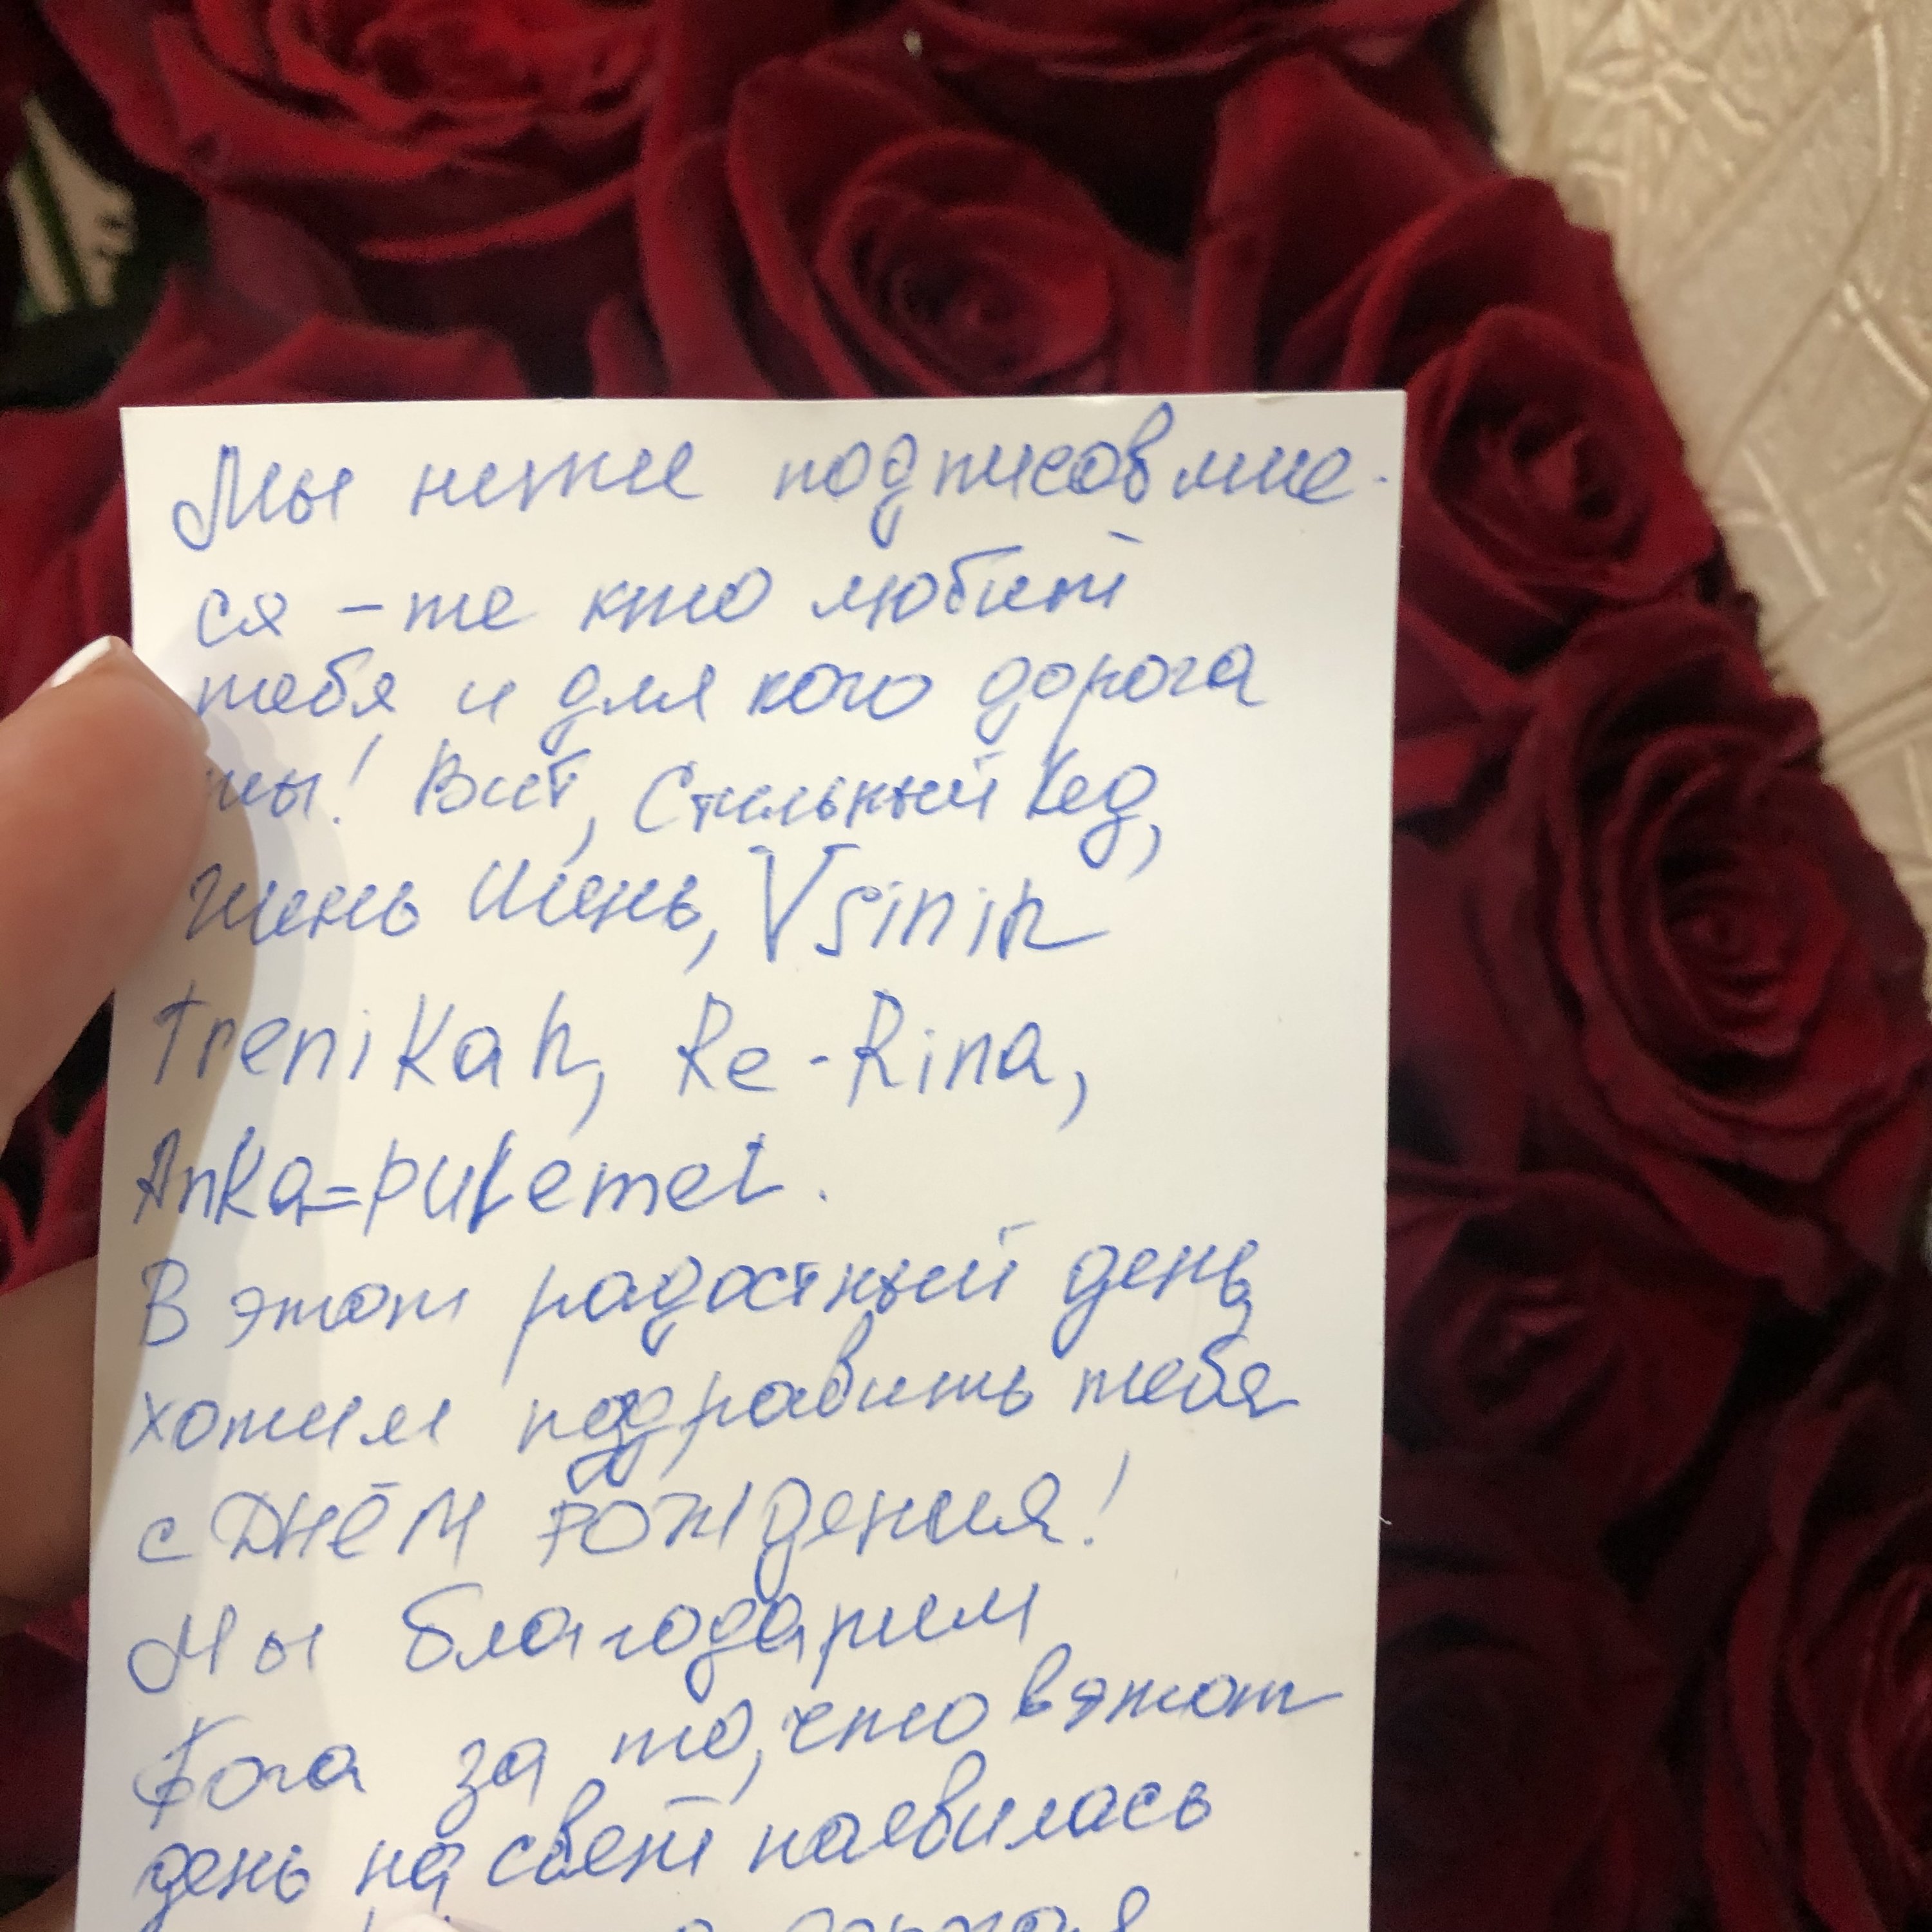 Мы ниже подписовшие-
ся - те кто любит
тебя и для кого дорога
ты! Вит, Стильный Кед,
Жень Шень, Vsinih
trenikah, Re-Rina,
Anka=pulemet.
В этот радостный день,
хотим поздравить тебя
с ДНЁМ РОЖдения!
Мы благодарим
Бога за то, что в этот
день на свет появилась